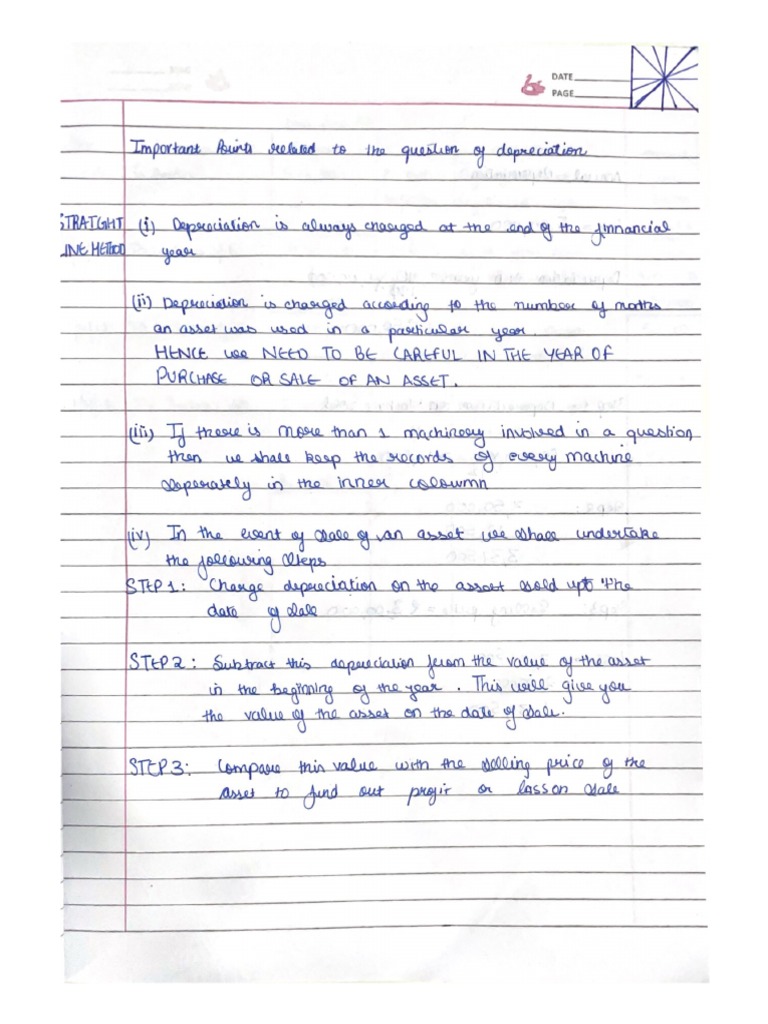 DATE
PAGE
Important Points related to the question of depreciation
STRAIGHT
LINE METHOD
(i) Depreciation is always charged at the end of the finnancial
year
(ii) Depreciation is charged according to the number of months
an asset was used in a particular year.
HENCE we NEED TO BE CAREFUL IN THE YEAR OF
PURCHASE OR SALE OF AN ASSET.
(iii) If there is more than 1 machinery involved in a question,
then we shall keep the records of every machine
seperately in the inner coloumn
(iv) In the event of sale of an asset we shall undertake
the following steps
STEP 1: Charge depreciation on the asset sold upto the
date of sale
STEP 2: Subtract this depreciation from the value of the asset
in the beginning of the year. This will give you
the value of the asset on the date of sale.
STEP 3: Compare this value with the selling price of the
asset to find out profit or loss on sale